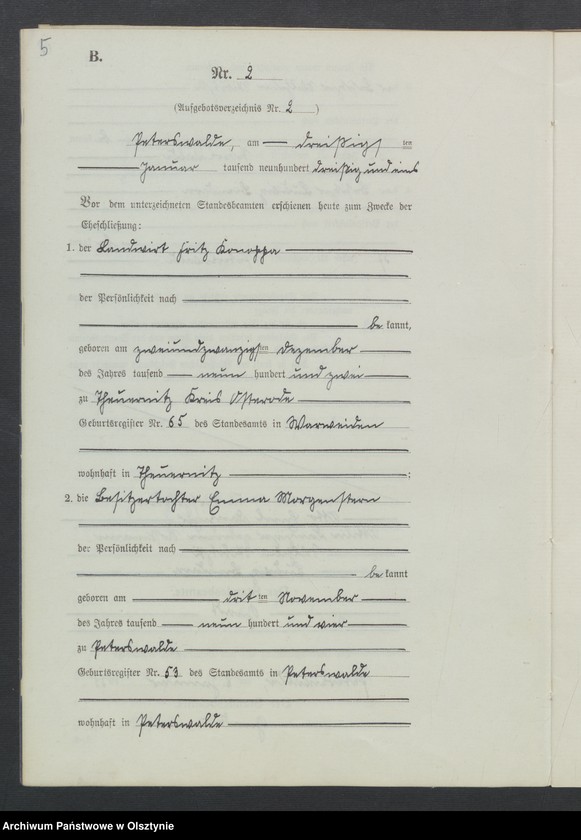 5
B.
Nr. 2
(Aufgebotsverzeichnis Nr. 2)
Peterswalde, am dreißigsten
Januar tausend neunhundert dreißig und eins
Vor dem unterzeichneten Standesbeamten erschienen heute zum Zwecke der
Eheschließung:
1. der Landwirt Fritz Konoppa
der Persönlichkeit nach
be kannt,
geboren am zweiundzwanzigsten Dezember
des Jahres tausend neun hundert und zwei
zu Theuernitz Kreis Osterode
Geburtsregister Nr. 65 des Standesamts in Warweiden
wohnhaft in Theuernitz ;
2. die Besitzertochter Emma Morgenstern
der Persönlichkeit nach
be kannt
geboren am dritten November
des Jahres tausend neun hundert und vier
zu Peterswalde
Geburtsregister Nr. 53 des Standesamts in Peterswalde
wohnhaft in Peterswalde
Archiwum Państwowe w Olsztynie